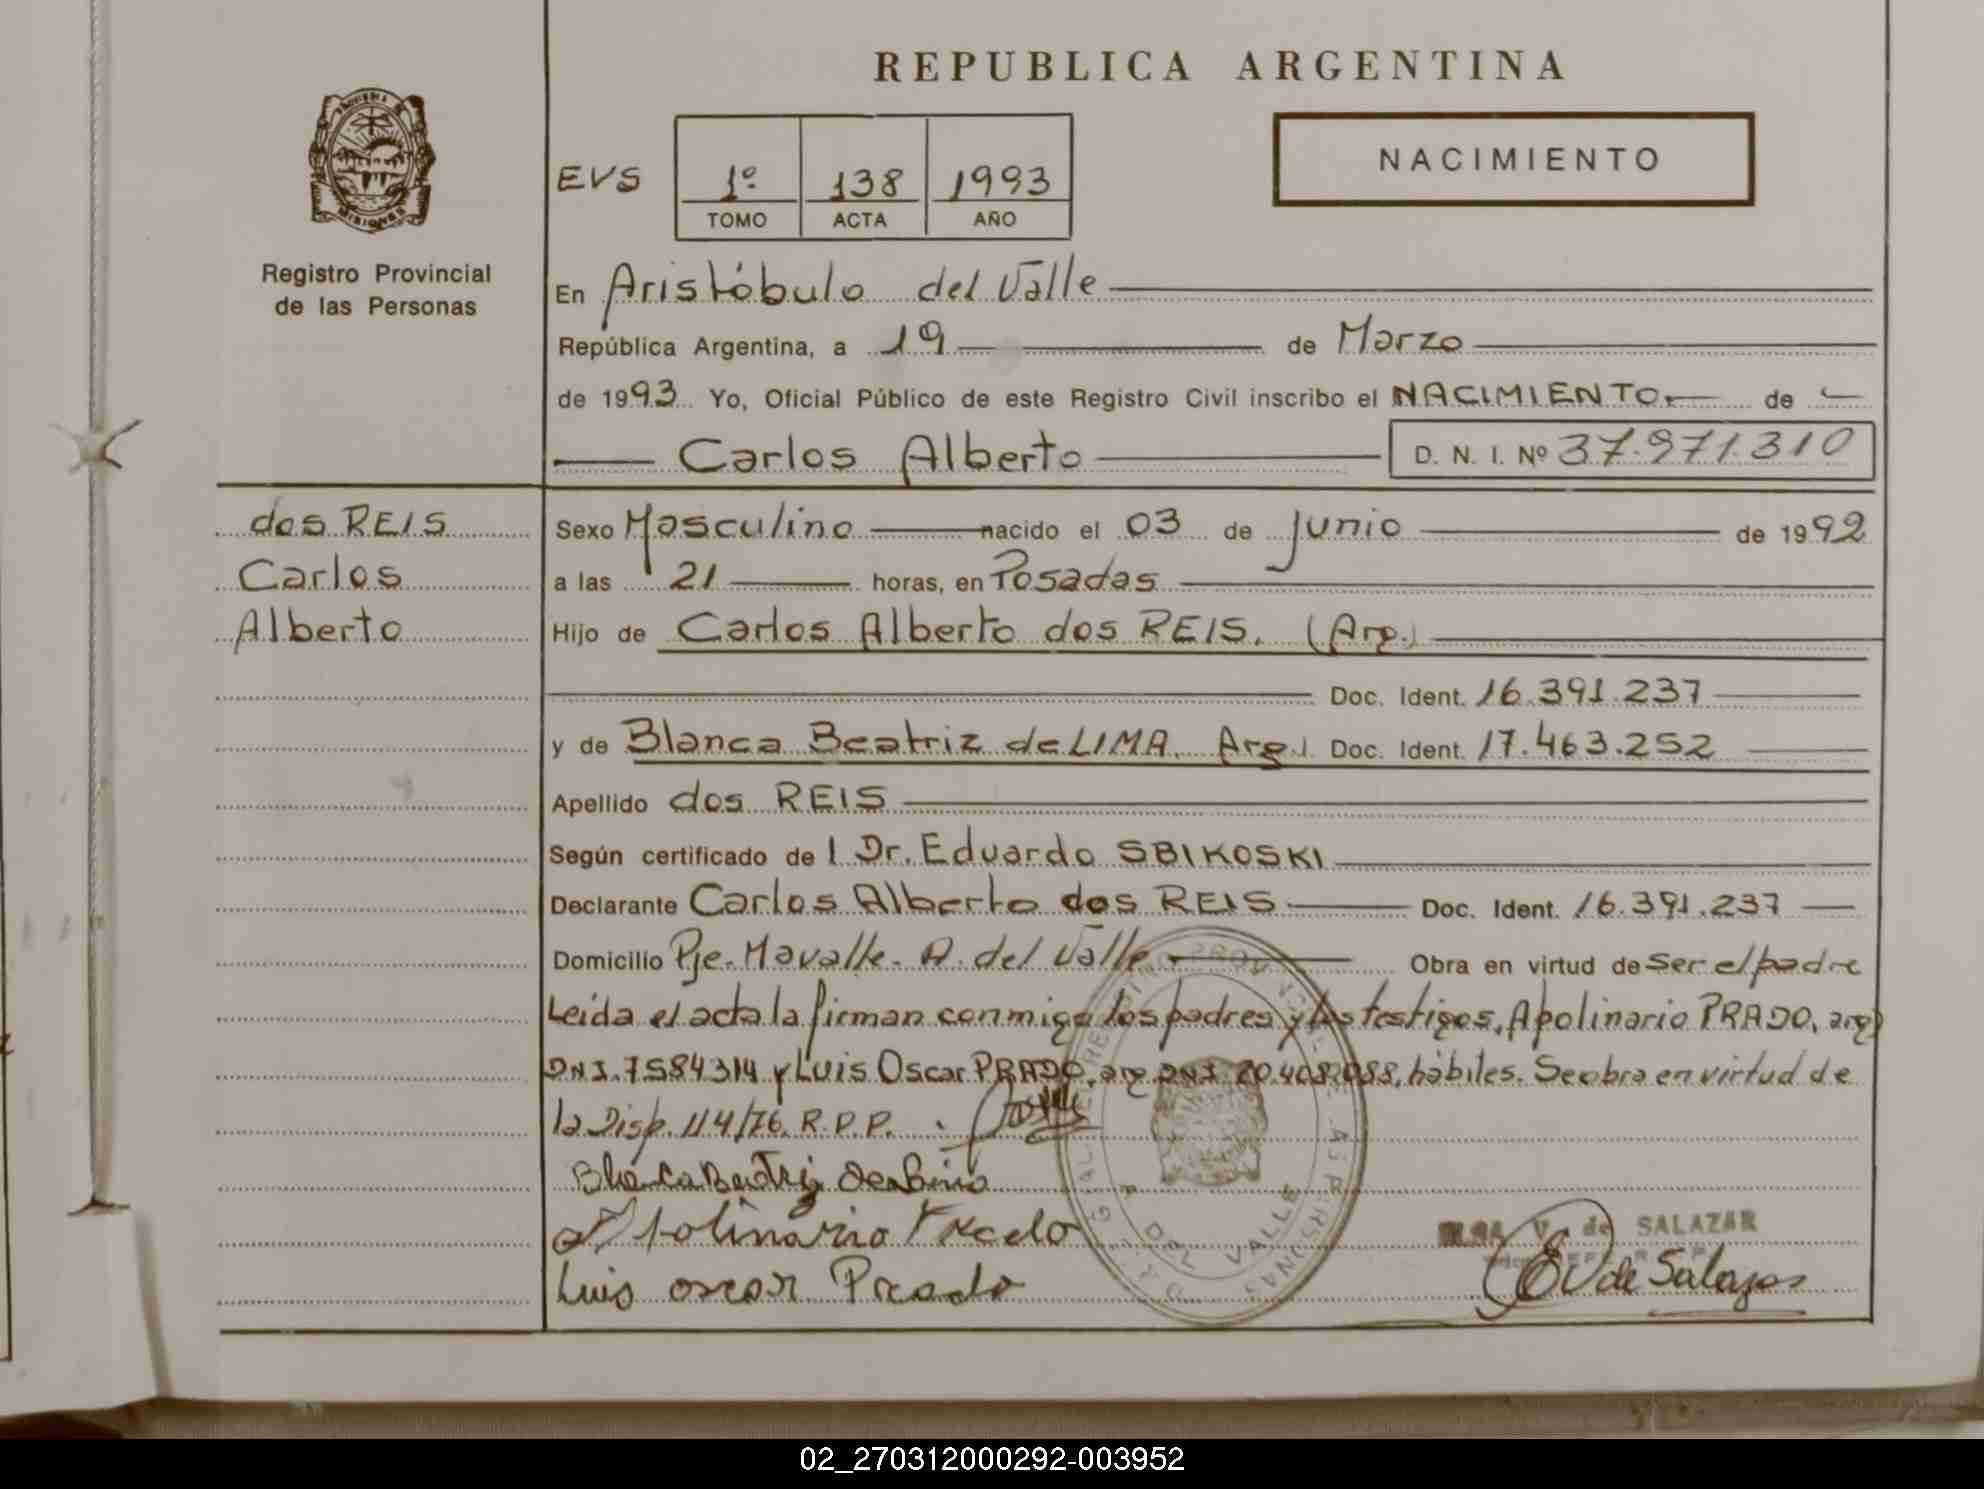 REPUBLICA ARGENTINA
NACIMIENTO
EVS
1º 138 1993
TOMO ACTA AÑO
MISIONES
Registro Provincial
de las Personas
En Aristóbulo del Valle
República Argentina, a 19 de Marzo
de 1993 Yo, Oficial Público de este Registro Civil inscribo el NACIMIENTO de
Carlos Alberto D. N. I. Nº 37.971.310
dos REIS
Carlos
Alberto
Sexo Masculino nacido el 03 de Junio de 1992
a las 21 horas, en Posadas
Hijo de Carlos Alberto dos REIS. (Arg.)
Doc. Ident. 16.391.237
y de Blanca Beatriz de LIMA. Arg. Doc. Ident. 17.463.252
Apellido dos REIS
Según certificado de l Dr. Eduardo SBIKOSKI
Declarante Carlos Alberto dos REIS Doc. Ident. 16.391.237
Domicilio Pje. Mavalle. A. del Valle Obra en virtud de Ser el padre
Leída el acta la firman conmigo los padres y los testigos, Apolinario PRADO, arg
DNI. 7584314 y Luis Oscar PRADO, arg DNI 20.408.088, hábiles. Se obra en virtud de
la Disp. 114/76. R.P.P.
Blanca Beatriz
Apolinario
Luis oscar Prado
V. de SALAZAR
EV de Salazar
DEL VALLE
02_270312000292-003952